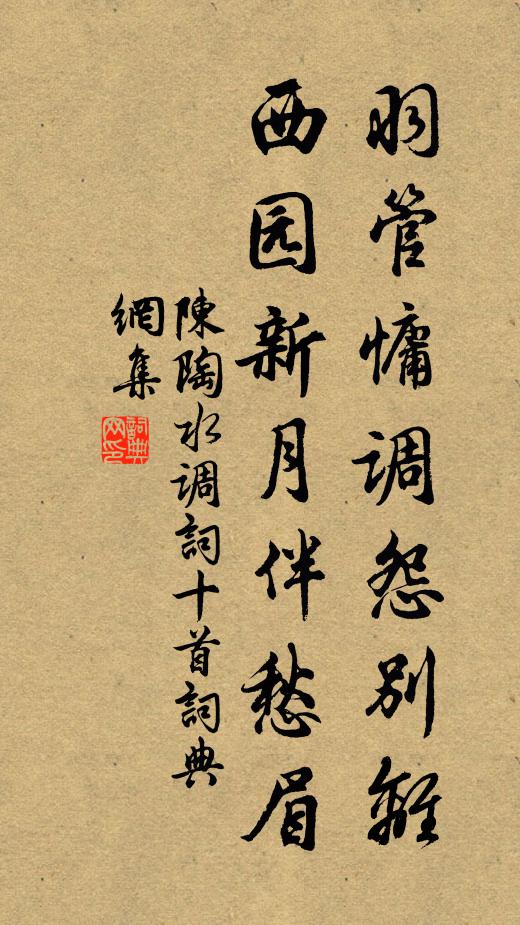 羽管慵调怨别離
西园新月伴愁眉
陳陶水调詞十首詞典
網集
詞典
网印